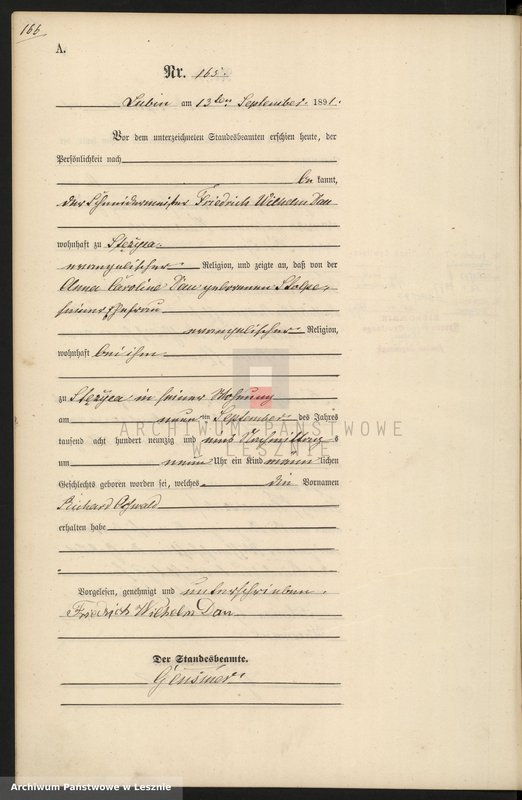 166
A.
Nr. 165.
Lubin am 13ten September 1891.
Vor dem unterzeichneten Standesbeamten erschien heute, der
Persönlichkeit nach
be kannt,
der Schneidermeister Friedrich Wilhelm Dau
wohnhaft zu Stęžyca
evangelischer Religion, und zeigte an, daß von der
Anna Caroline Dau geborenen Stolpe,
seiner Ehefrau
evangelischer Religion,
wohnhaft bei ihm
zu Stęžyca in seiner Wohnung
am neun ten September des Jahres
tausend acht hundert neunzig und eins Nachmittag s
um neun Uhr ein Kind männ lichen
Geschlechts geboren worden sei, welches die Vornamen
Richard Oswald
erhalten habe
Vorgelesen, genehmigt und unterschrieben.
Friedrich Wilhelm Dau
Der Standesbeamte.
ARCHIWUM PAŃSTWOWE
W LESZNIE
Archiwum Państwowe w Lesznie